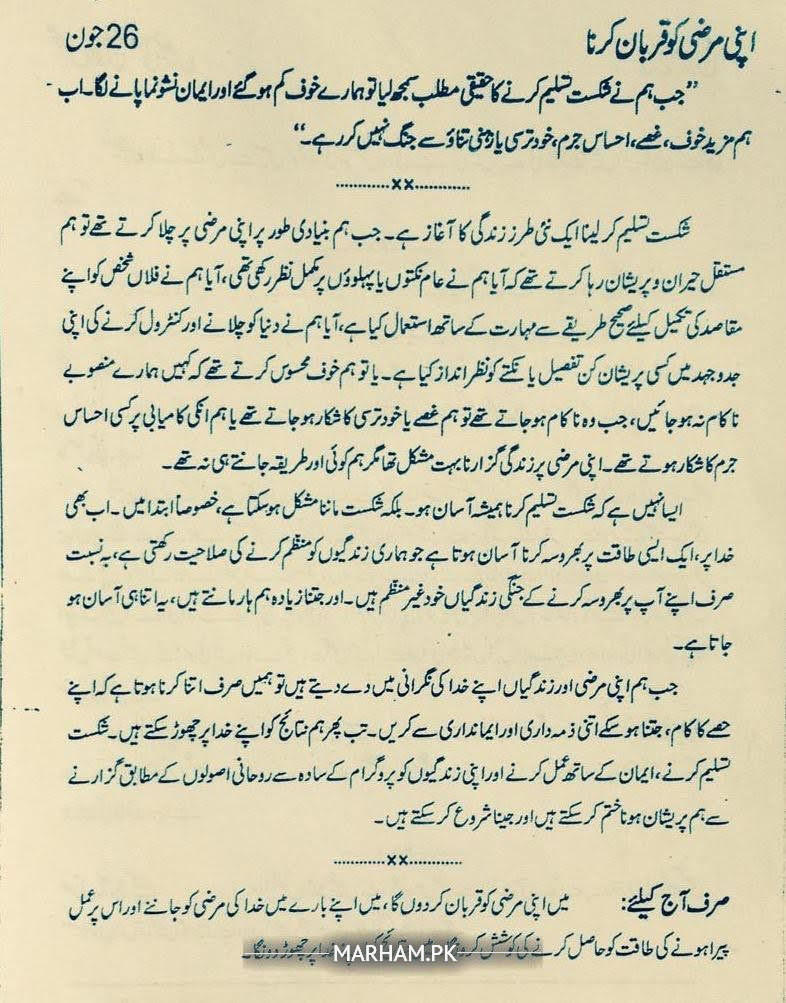 اپنی مرضی کو قربان کرنا 26 جون
”جب ہم نے شکست تسلیم کرنے کا حقیقی مطلب سمجھ لیا تو ہمارے خوف کم ہو گئے اور ایمان نشو نما پانے لگا۔ اب
ہم مزید خوف، غصے، احساس جرم، خود ترسی یا ذہنی تناؤ سے جنگ نہیں کر رہے۔“
............xx............
شکست تسلیم کر لینا ایک نئی طرز زندگی کا آغاز ہے۔ جب ہم بنیادی طور پر اپنی مرضی پر چلا کرتے تھے تو ہم
مستقل حیران و پریشان رہا کرتے تھے کہ آیا ہم نے عام نکتوں یا پہلوؤں پر مکمل نظر رکھی تھی، آیا ہم نے فلاں شخص کو اپنے
مقاصد کی تکمیل کیلئے صحیح طریقے سے مہارت کے ساتھ استعمال کیا ہے، آیا ہم نے دنیا کو چلانے اور کنٹرول کرنے کی اپنی
جدوجہد میں کسی پریشان کن تفصیل یا نکتے کو نظر انداز کیا ہے۔ یا تو ہم خوف محسوس کرتے تھے کہ کہیں ہمارے منصوبے
ناکام نہ ہو جائیں، جب وہ ناکام ہو جاتے تھے تو ہم غصے یا خود ترسی کا شکار ہو جاتے تھے یا ہم انکی کامیابی پر کسی احساس
جرم کا شکار ہوتے تھے۔ اپنی مرضی پر زندگی گزارنا بہت مشکل تھا مگر ہم کوئی اور طریقہ جانتے ہی نہ تھے۔
ایسا نہیں ہے کہ شکست تسلیم کرنا ہمیشہ آسان ہو۔ بلکہ شکست ماننا مشکل ہو سکتا ہے، خصوصاً ابتدا میں۔ اب بھی
خدا پر، ایک ایسی طاقت پر بھروسہ کرنا آسان ہوتا ہے جو ہماری زندگیوں کو منظم کرنے کی صلاحیت رکھتی ہے، بہ نسبت
صرف اپنے آپ پر بھروسہ کرنے کے جنکی زندگیاں خود غیر منظم ہیں۔ اور جتنا زیادہ ہم ہار مانتے ہیں، یہ اتنا ہی آسان ہو
جاتا ہے۔
جب ہم اپنی مرضی اور زندگیاں اپنے خدا کی نگرانی میں دے دیتے ہیں تو ہمیں صرف اتنا کرنا ہوتا ہے کہ اپنے
حصے کا کام، جتنا ہو سکے اتنی ذمہ داری اور ایمانداری سے کریں۔ تب پھر ہم نتائج کو اپنے خدا پر چھوڑ سکتے ہیں۔ شکست
تسلیم کرنے، ایمان کے ساتھ عمل کرنے اور اپنی زندگیوں کو پروگرام کے سادہ سے روحانی اصولوں کے مطابق گزارنے
سے ہم پریشان ہونا ختم کر سکتے ہیں اور جینا شروع کر سکتے ہیں۔
............xx............
صرف آج کیلئے: میں اپنی مرضی کو قربان کر دوں گا، میں اپنے بارے میں خدا کی مرضی کو جاننے اور اس پر عمل
پیرا ہونے کی طاقت کو حاصل کرنے کی کوشش کروں گا پر چھوڑ دونگا۔
MARHAM.PK